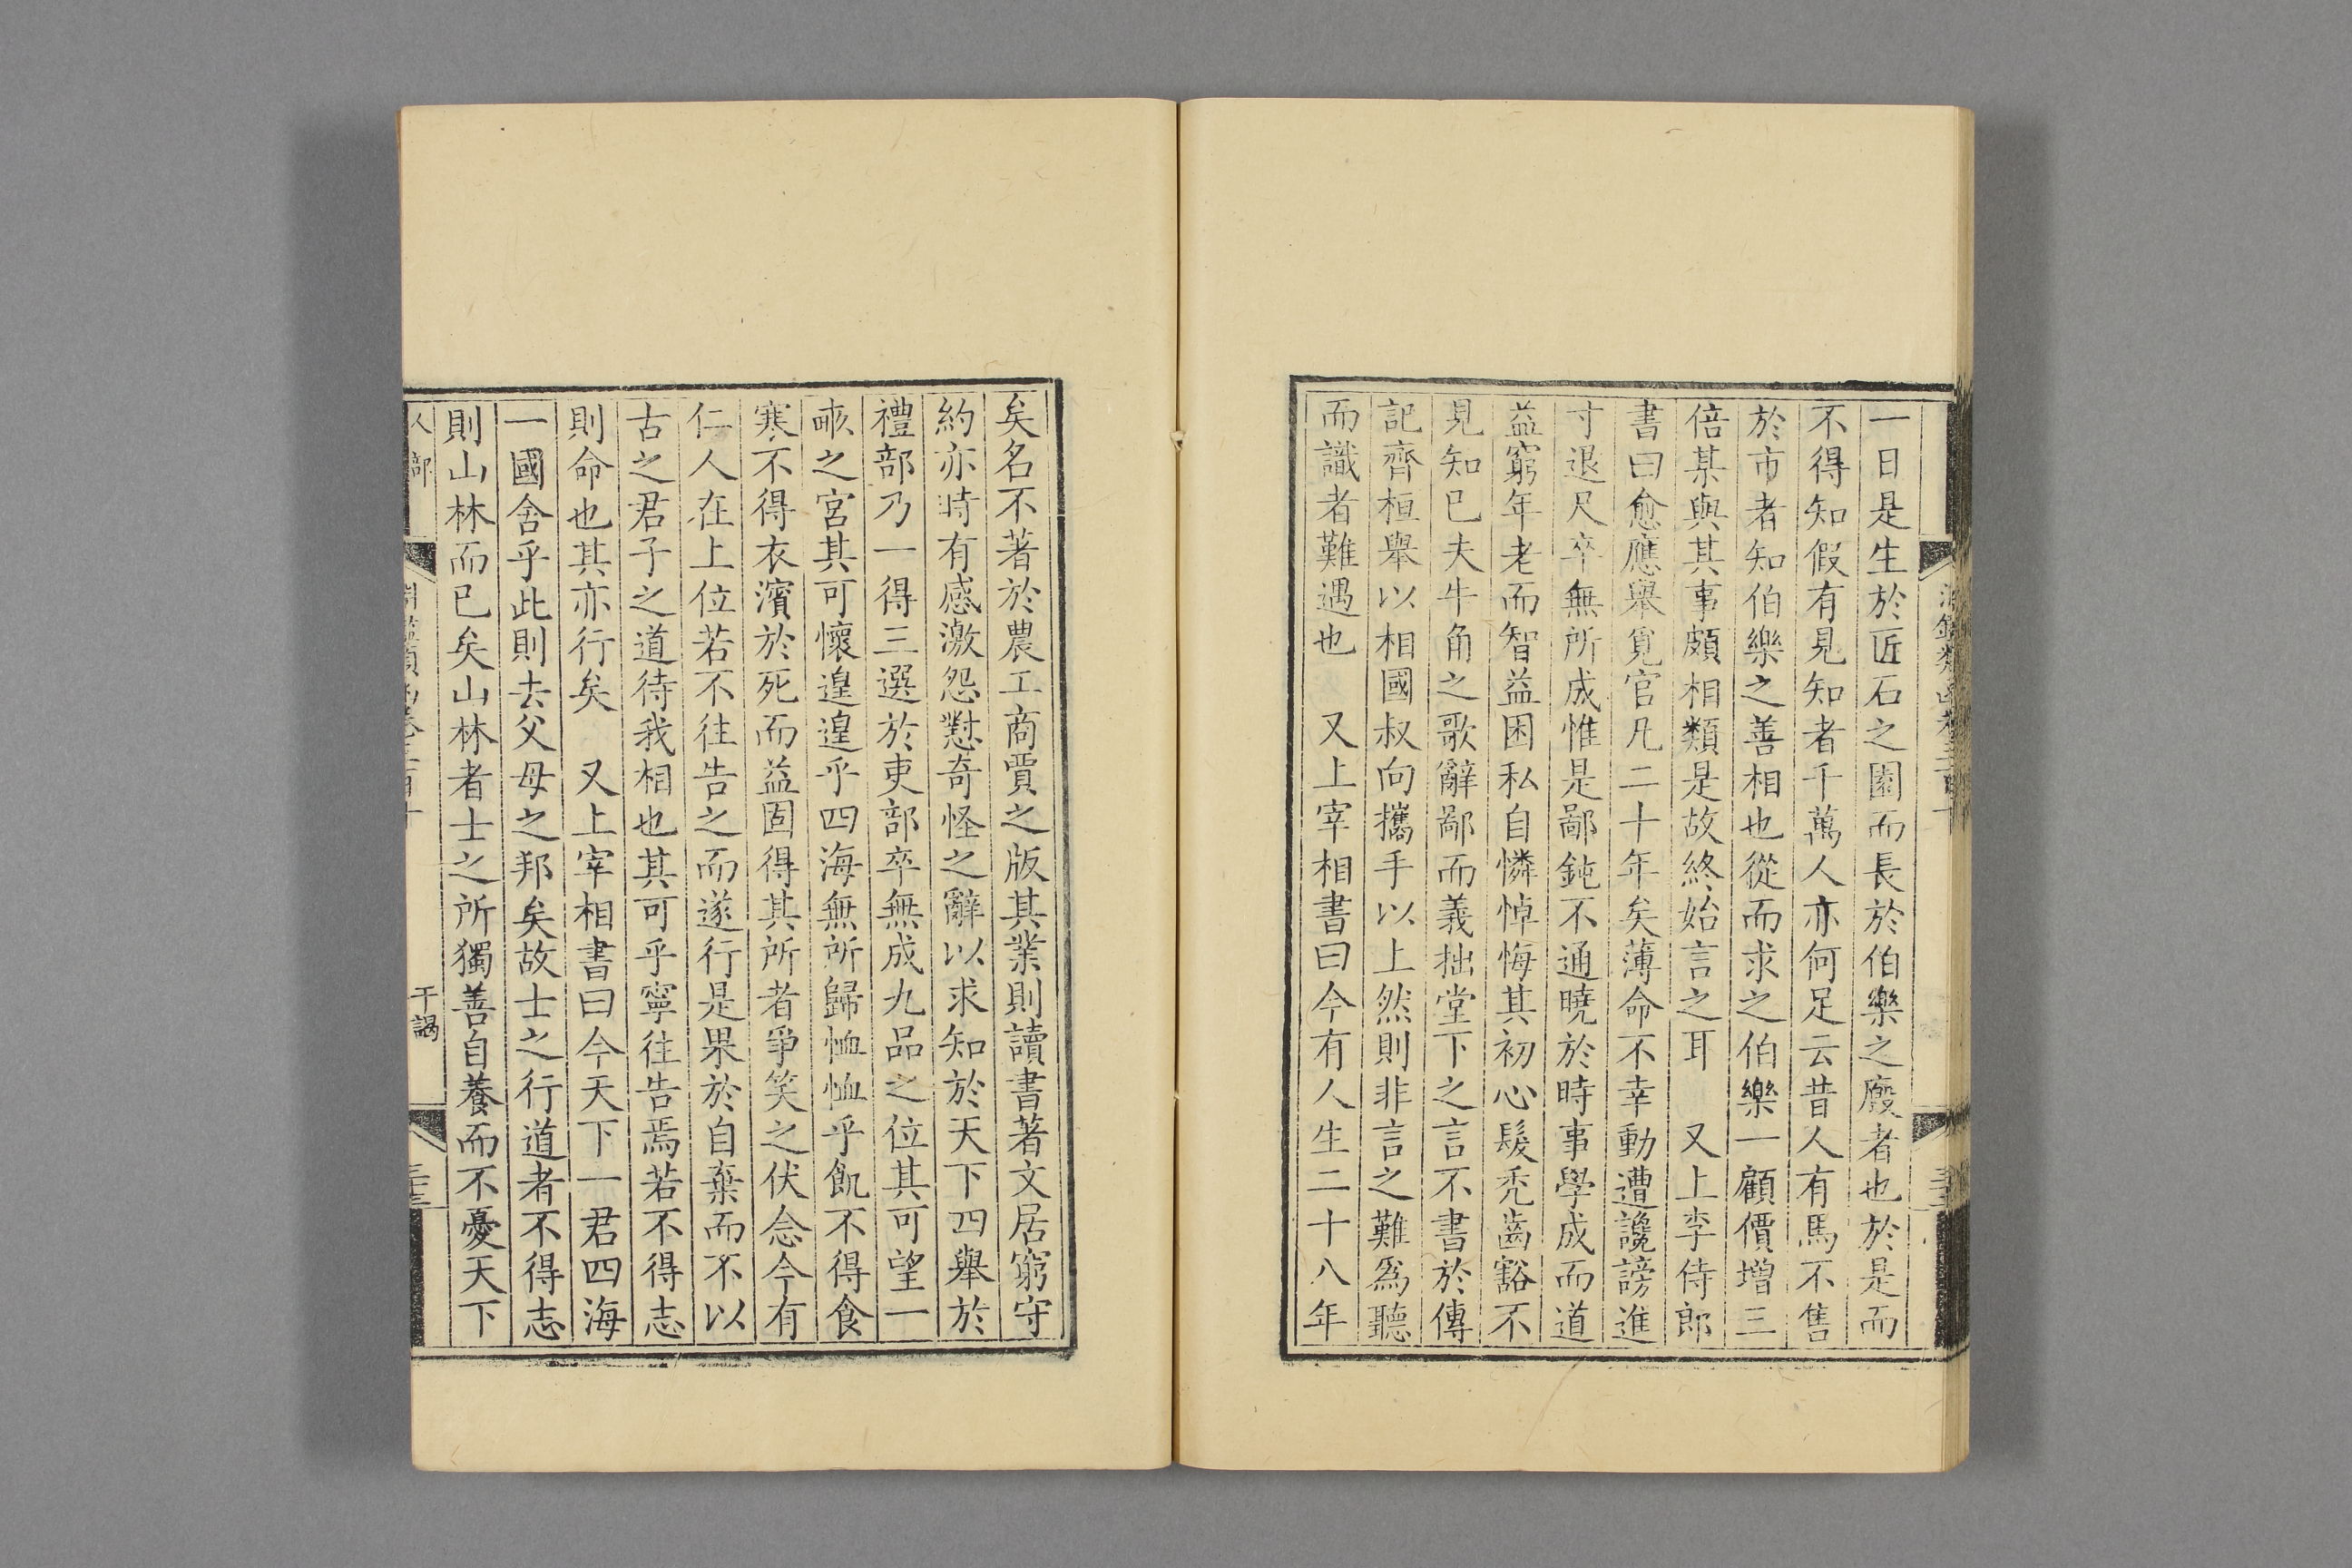 一日是生於匠石之園而長於伯樂之廄者也於是而
不得知假有見知者千萬人亦何足云昔人有馬不售
於市者知伯樂之善相也從而求之伯樂一顧價增三
倍某與其事頗相類是故終始言之耳　又上李侍郎
書曰愈應舉覓官凡二十年矣薄命不幸動遭讒謗進
寸退尺卒無所成惟是鄙鈍不通曉於時事學成而道
益窮年老而智益困私自憐悼悔其初心髮禿齒豁不
見知已夫牛角之歌辭鄙而義拙堂下之言不書於傳
記齊桓舉以相國叔向攜手以上然則非言之難爲聽
而識者難遇也　又上宰相書曰今有人生二十八年
矣名不著於農工商賈之版其業則讀書著文居窮守
約亦時有感激怨懟奇怪之辭以求知於天下四舉於
禮部乃一得三選於吏部卒無成九品之位其可望一
畮之宮其可懷遑遑乎四海無所歸恤恤乎飢不得食
寒不得衣濱於死而益固得其所者爭笑之伏念今有
仁人在上位若不往告之而遂行是果於自棄而不以
古之君子之道待我相也其可乎寧往告焉若不得志
則命也其亦行矣　又上宰相書曰今天下一君四海
一國舍乎此則去父母之邦矣故士之行道者不得志
則山林而已矣山林者士之所獨善自養而不憂天下
人部
干謁